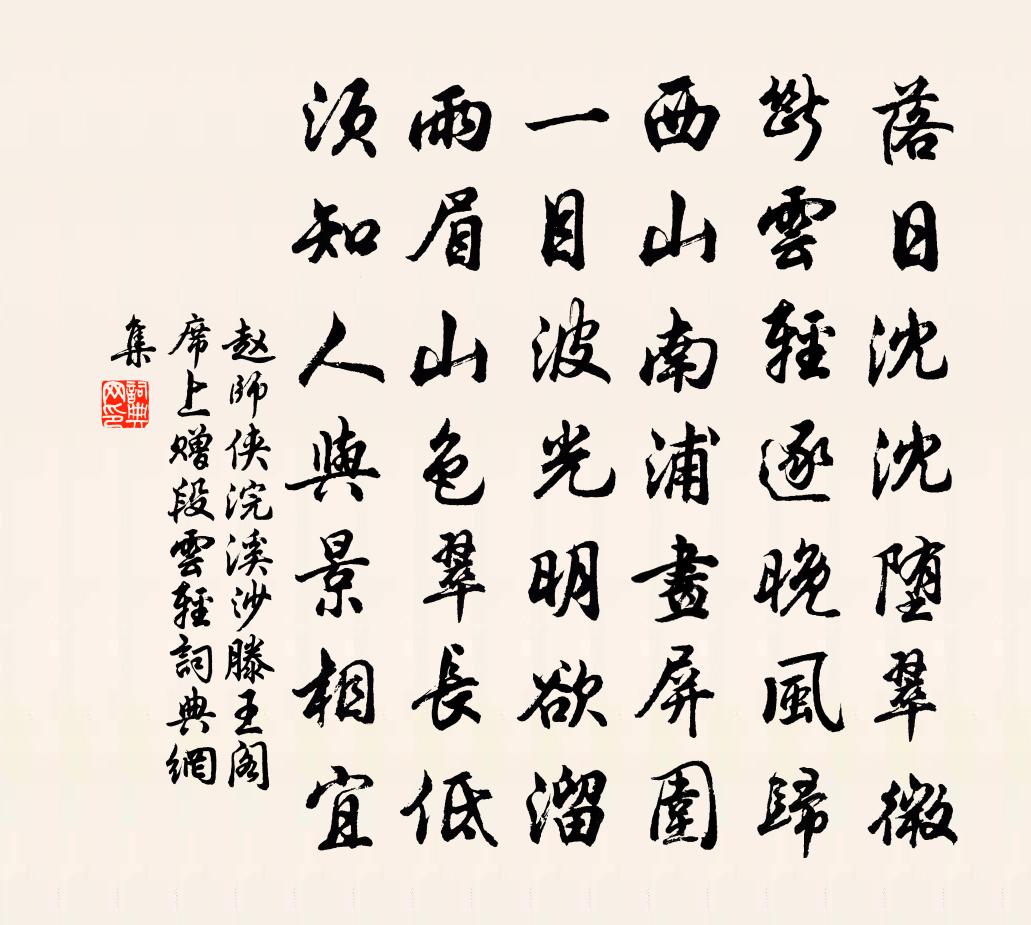 落日沈沈墮翠微
斷雲輕逐晚風歸
西山南浦畫屏圍
一目波光明欲溜
兩眉山色翠長低
須知人與景相宜
赵師侠浣溪沙滕王阁
席上赠段雲輕詞典網
集
詞典
网印